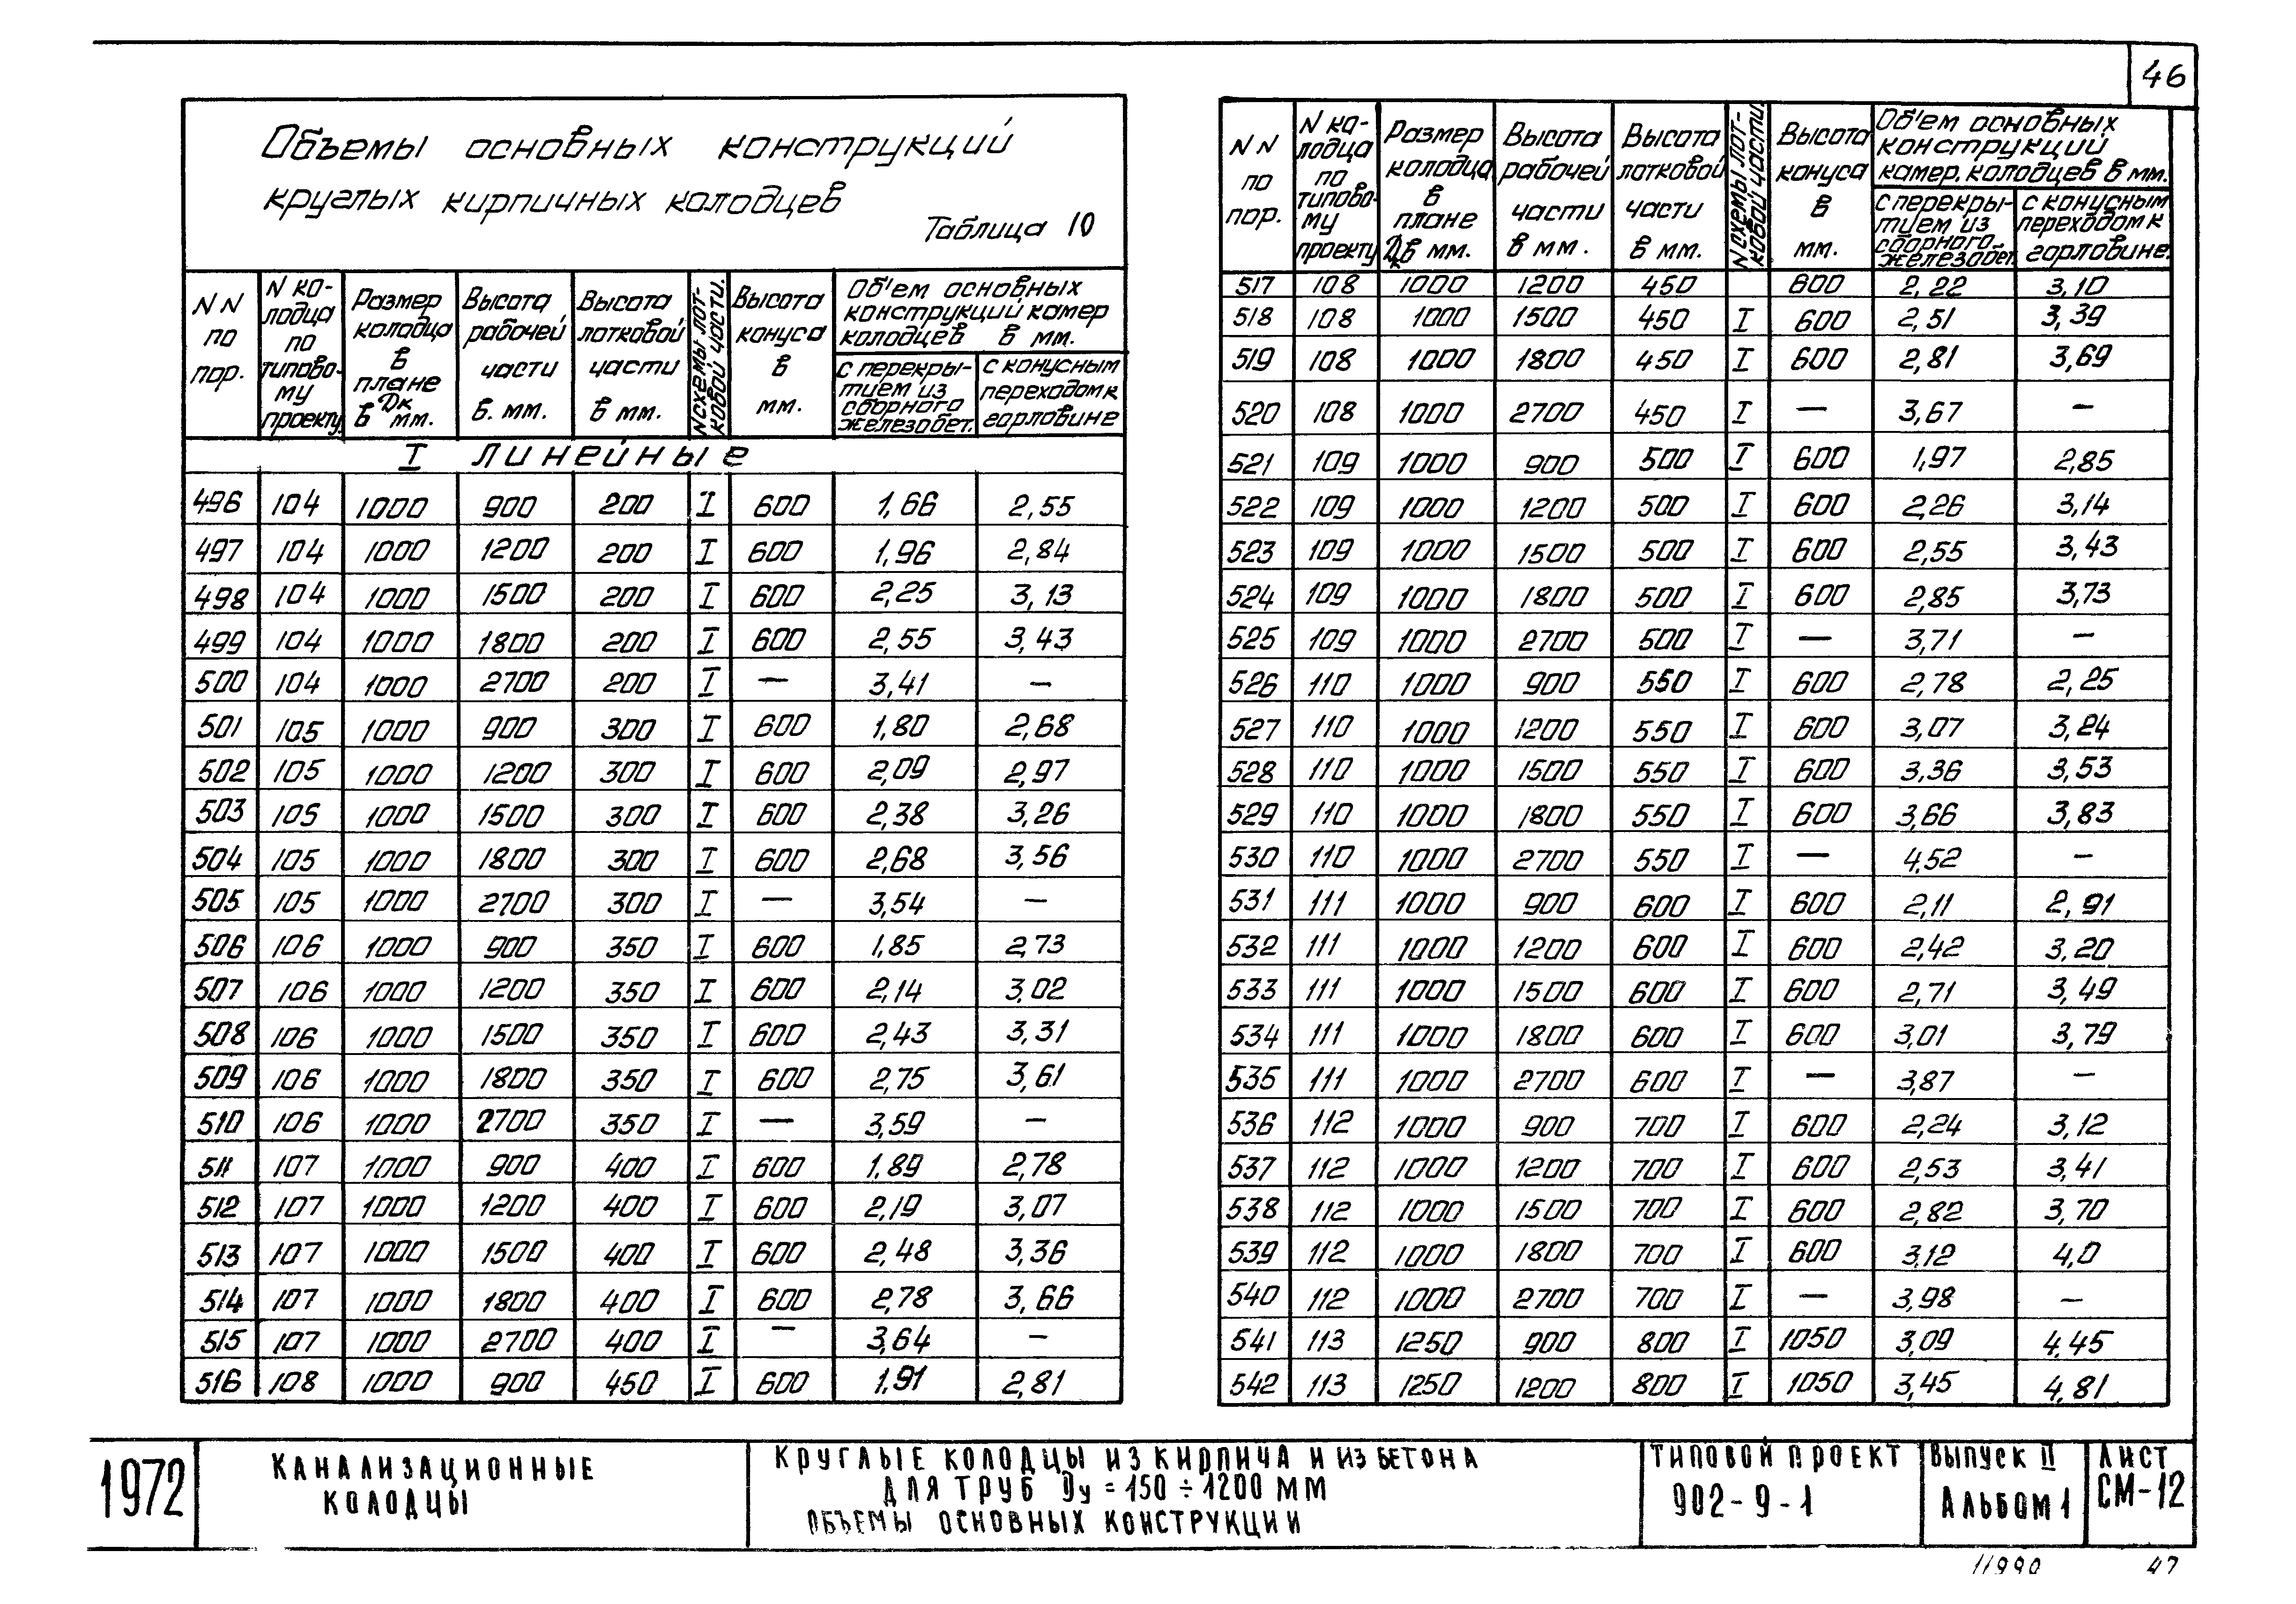 46
Объемы основных конструкций
круглых кирпичных колодцев
Таблица 10
NN по пор. | N колодца по типовому проекту | Размер колодца в плане Dк в мм. | Высота рабочей части в. мм. | Высота лотковой части в мм. | N схемы лотковой части. | Высота конуса в мм. | Об'ем основных конструкций камер колодцев в мм. | с перекрытием из сборного железобет. | с конусным переходом к горловине
I линейные
496 104 1000 900 200 I 600 1,66 2,55
497 104 1000 1200 200 I 600 1,96 2,84
498 104 1000 1500 200 I 600 2,25 3,13
499 104 1000 1800 200 I 600 2,55 3,43
500 104 1000 2700 200 I — 3,41 —
501 105 1000 900 300 I 600 1,80 2,68
502 105 1000 1200 300 I 600 2,09 2,97
503 105 1000 1500 300 I 600 2,38 3,26
504 105 1000 1800 300 I 600 2,68 3,56
505 105 1000 2700 300 I — 3,54 —
506 106 1000 900 350 I 600 1,85 2,73
507 106 1000 1200 350 I 600 2,14 3,02
508 106 1000 1500 350 I 600 2,43 3,31
509 106 1000 1800 350 I 600 2,75 3,61
510 106 1000 2700 350 I — 3,59 —
511 107 1000 900 400 I 600 1,89 2,78
512 107 1000 1200 400 I 600 2,19 3,07
513 107 1000 1500 400 I 600 2,48 3,36
514 107 1000 1800 400 I 600 2,78 3,66
515 107 1000 2700 400 I — 3,64 —
516 108 1000 900 450 I 600 1,91 2,81
NN по пор. | N колодца по типовому проекту | Размер колодца в плане Dк в мм. | Высота рабочей части в мм. | Высота лотковой части в мм. | N схемы лотковой части | Высота конуса в мм. | Об'ем основных конструкций камер. колодцев в мм. | с перекрытием из сборного железобет. | с конусным переходом к горловине.
517 108 1000 1200 450 600 2,22 3,10
518 108 1000 1500 450 I 600 2,51 3,39
519 108 1000 1800 450 I 600 2,81 3,69
520 108 1000 2700 450 I — 3,67 —
521 109 1000 900 500 I 600 1,97 2,85
522 109 1000 1200 500 I 600 2,26 3,14
523 109 1000 1500 500 I 600 2,55 3,43
524 109 1000 1800 500 I 600 2,85 3,73
525 109 1000 2700 500 I — 3,71 —
526 110 1000 900 550 I 600 2,78 2,25
527 110 1000 1200 550 I 600 3,07 3,24
528 110 1000 1500 550 I 600 3,36 3,53
529 110 1000 1800 550 I 600 3,66 3,83
530 110 1000 2700 550 I — 4,52 —
531 111 1000 900 600 I 600 2,11 2,91
532 111 1000 1200 600 I 600 2,42 3,20
533 111 1000 1500 600 I 600 2,71 3,49
534 111 1000 1800 600 I 600 3,01 3,79
535 111 1000 2700 600 I — 3,87 —
536 112 1000 900 700 I 600 2,24 3,12
537 112 1000 1200 700 I 600 2,53 3,41
538 112 1000 1500 700 I 600 2,82 3,70
539 112 1000 1800 700 I 600 3,12 4,0
540 112 1000 2700 700 I — 3,98 —
541 113 1250 900 800 I 1050 3,09 4,45
542 113 1250 1200 800 I 1050 3,45 4,81
1972
Канализационные
колодцы
Круглые колодцы из кирпича и из бетона
для труб Ду = 150 ÷ 1200 мм
Объемы основных конструкции
Типовой проект
902-9-1
Выпуск II
Альбом 1
Лист
СМ-12
11990 47